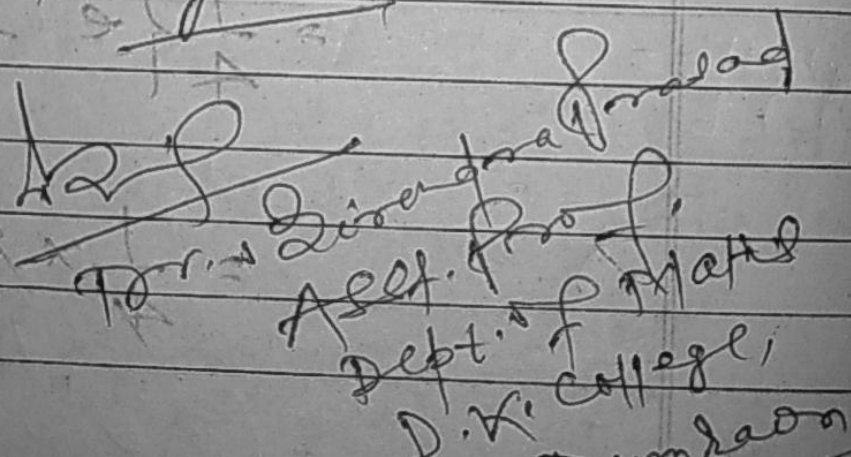 Dr. Birendra Prasad
Asst. Prof.
Dept. of Maths
D.K. College,